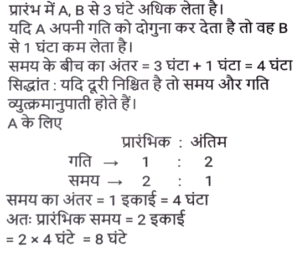 प्रारंभ में A, B से 3 घंटे अधिक लेता है।
यदि A अपनी गति को दोगुना कर देता है तो वह B
से 1 घंटा कम लेता है।
समय के बीच का अंतर = 3 घंटा + 1 घंटा = 4 घंटा
सिद्धांत : यदि दूरी निश्चित है तो समय और गति
व्युत्क्रमानुपाती होते हैं।
A के लिए
प्रारंभिक : अंतिम
गति → 1 : 2
समय → 2 : 1
समय का अंतर = 1 इकाई = 4 घंटा
अतः प्रारंभिक समय = 2 इकाई
= 2 × 4 घंटे = 8 घंटे